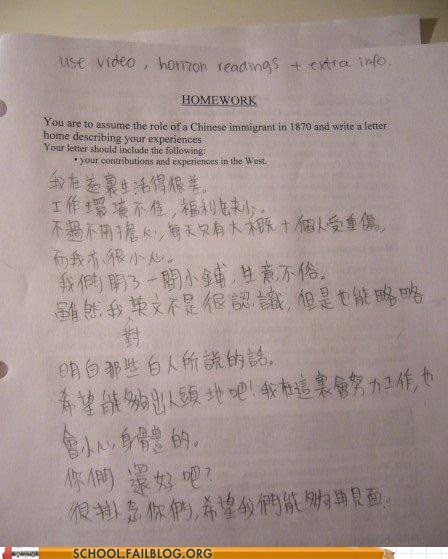 use video, horizon readings + extra info.
HOMEWORK
You are to assume the role of a Chinese immigrant in 1870 and write a letter
home describing your experiences
Your letter should include the following:
• your contributions and experiences in the West.
我在這裏生活得很差。
工作環境不佳，福利缺少。
不過不用擔心，每天只有大概十個人受重傷，
而我亦很小心。
我們開了一間小鋪，生意不俗。
雖然我英文不是很認識，但是也能略略
對
明白那些白人所說的話。
希望能夠出人頭地吧！我在這裏會努力工作，也
會小心身體的。
你們還好吧？
很掛念你們，希望我們能夠再見面。
SCHOOL.FAILBLOG.ORG